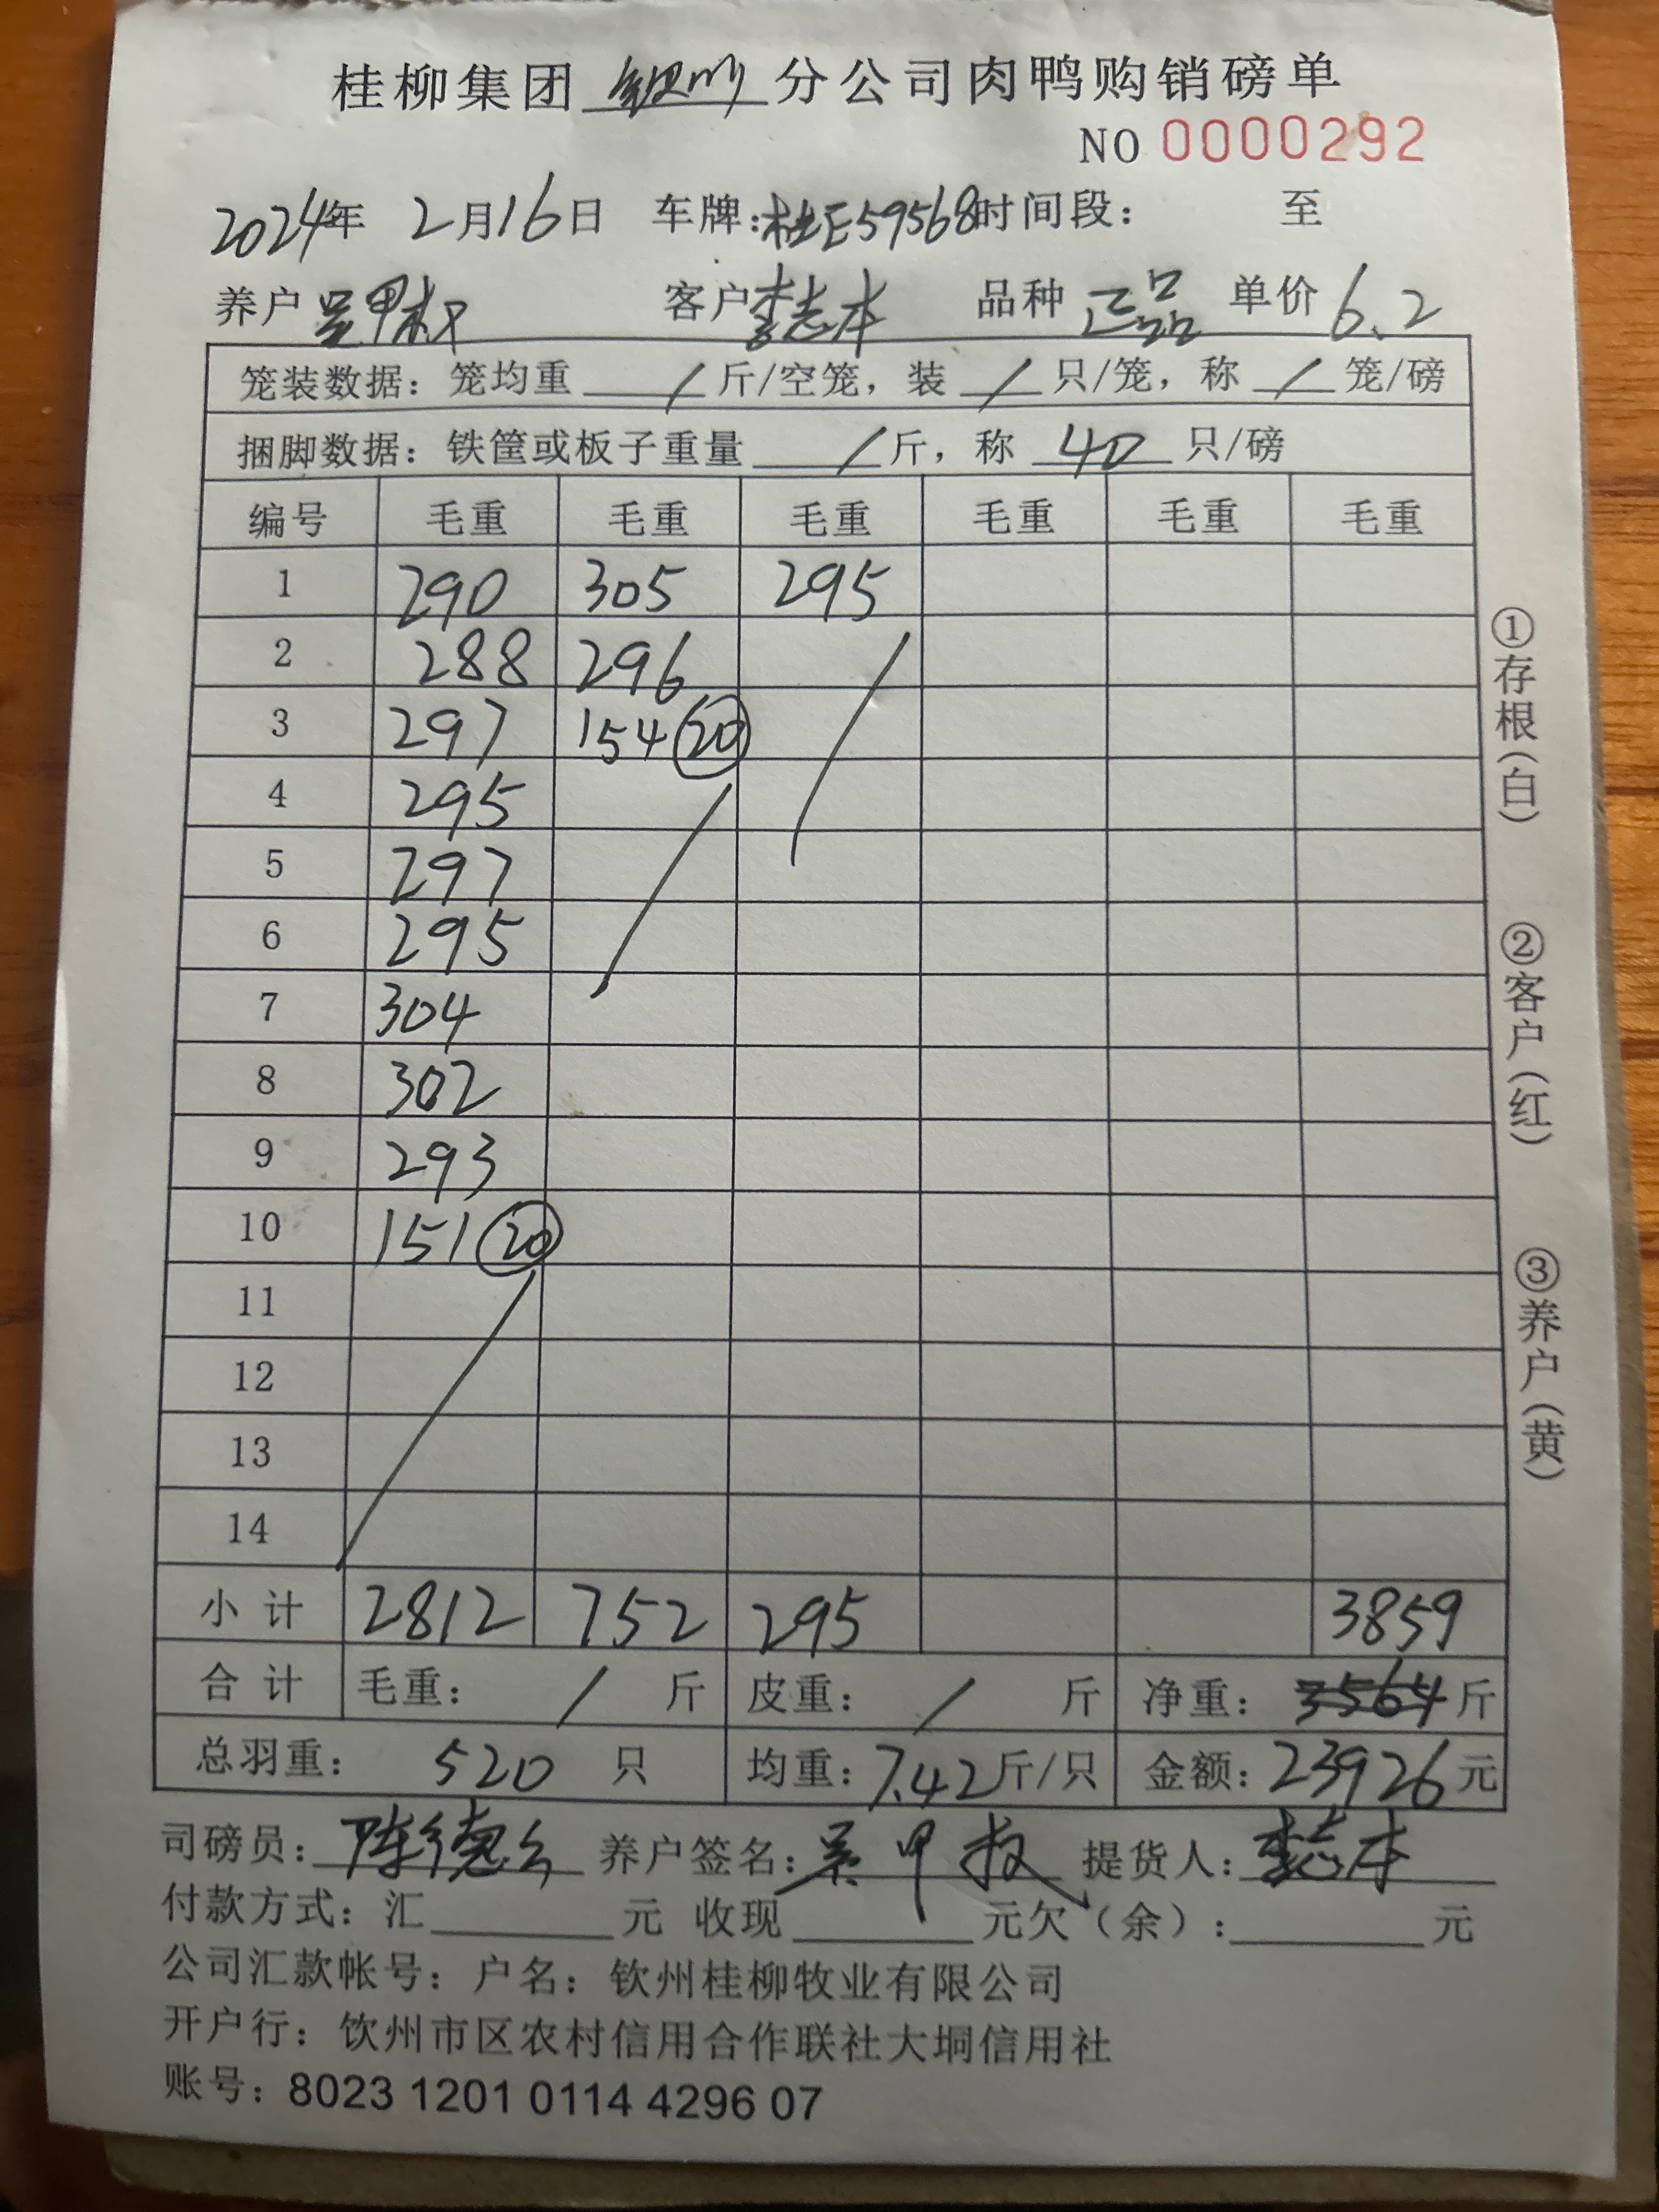 桂柳集团钦州分公司肉鸭购销磅单
NO 0000292
2024年 2月16日 车牌:桂E59568时间段: 至
养户吴甲权 客户李志本 品种 正品 单价6.2
笼装数据:笼均重 / 斤/空笼,装 / 只/笼,称 / 笼/磅
捆脚数据:铁筐或板子重量 / 斤,称 40 只/磅
编号 毛重 毛重 毛重 毛重 毛重 毛重
1 290 305 295
2 288 296
3 297 154 20
4 295
5 297
6 295
7 304
8 302
9 293
10 151 20
11
12
13
14
小计 2812 752 295 3859
合计 毛重: / 斤 皮重: / 斤 净重: 3564 斤
总羽重: 520 只 均重:7.42斤/只 金额:23926元
司磅员: 陈德 养户签名: 吴甲权 提货人: 李志本
付款方式:汇 元 收现 元欠(余): 元
公司汇款帐号:户名:钦州桂柳牧业有限公司
开户行:钦州市区农村信用合作联社大垌信用社
账号:8023 1201 0114 4296 07
①存根(白)
②客户(红)
③养户(黄)